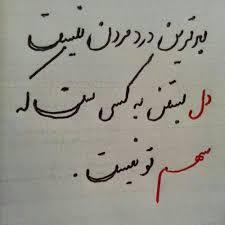 بدترین درد مردن نیست
دل بستن به کسی ست که
سهم تو نیست .